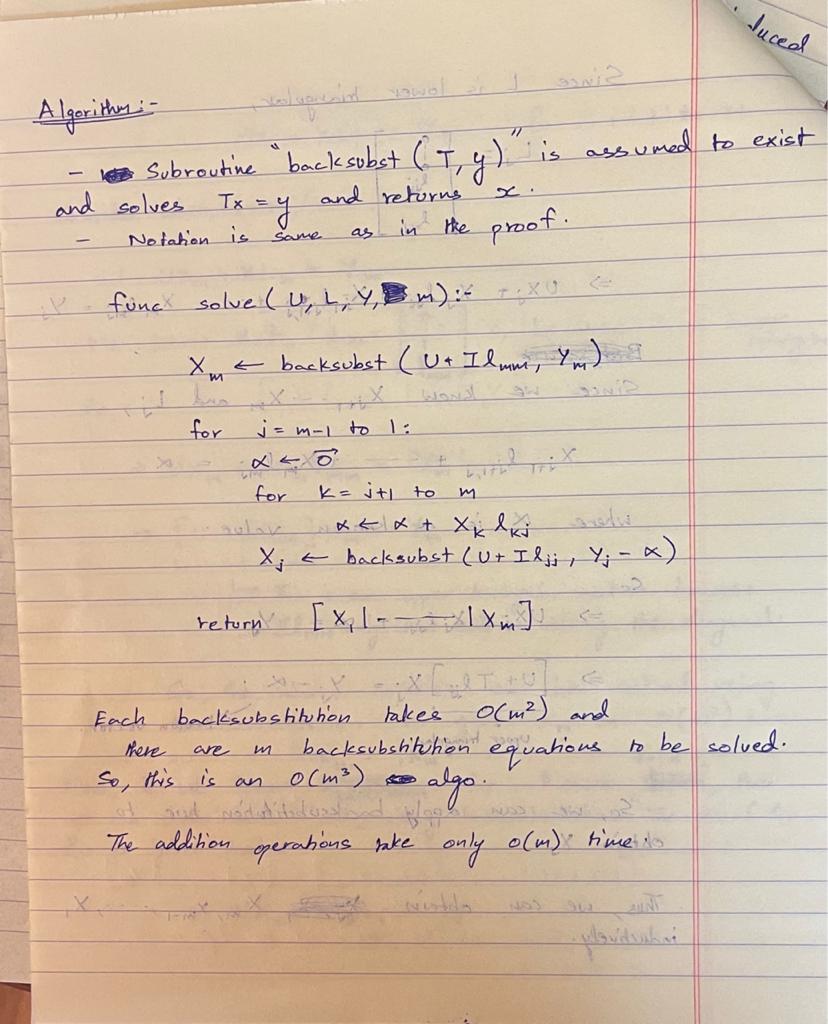 duced
Algorithm :-
- Subroutine "backsubst (T, y)" is assumed to exist
and solves Tx = y and returns x.
- Notation is same as in the proof.
func solve (U, L, Y, m) :-
X_m ← backsubst (U + I l_mm, Y_m)
for j = m-1 to 1:
α ← 0⃗
for k = j+1 to m
α ← α + X_k l_kj
X_j ← backsubst (U + I l_jj, Y_j - α)
return [X_1 | - — | X_m]
Each backsubstitution takes O(m²) and
there are m backsubstitution equations to be solved.
So, this is an O(m³) algo.
The addition operations take only O(m) time.